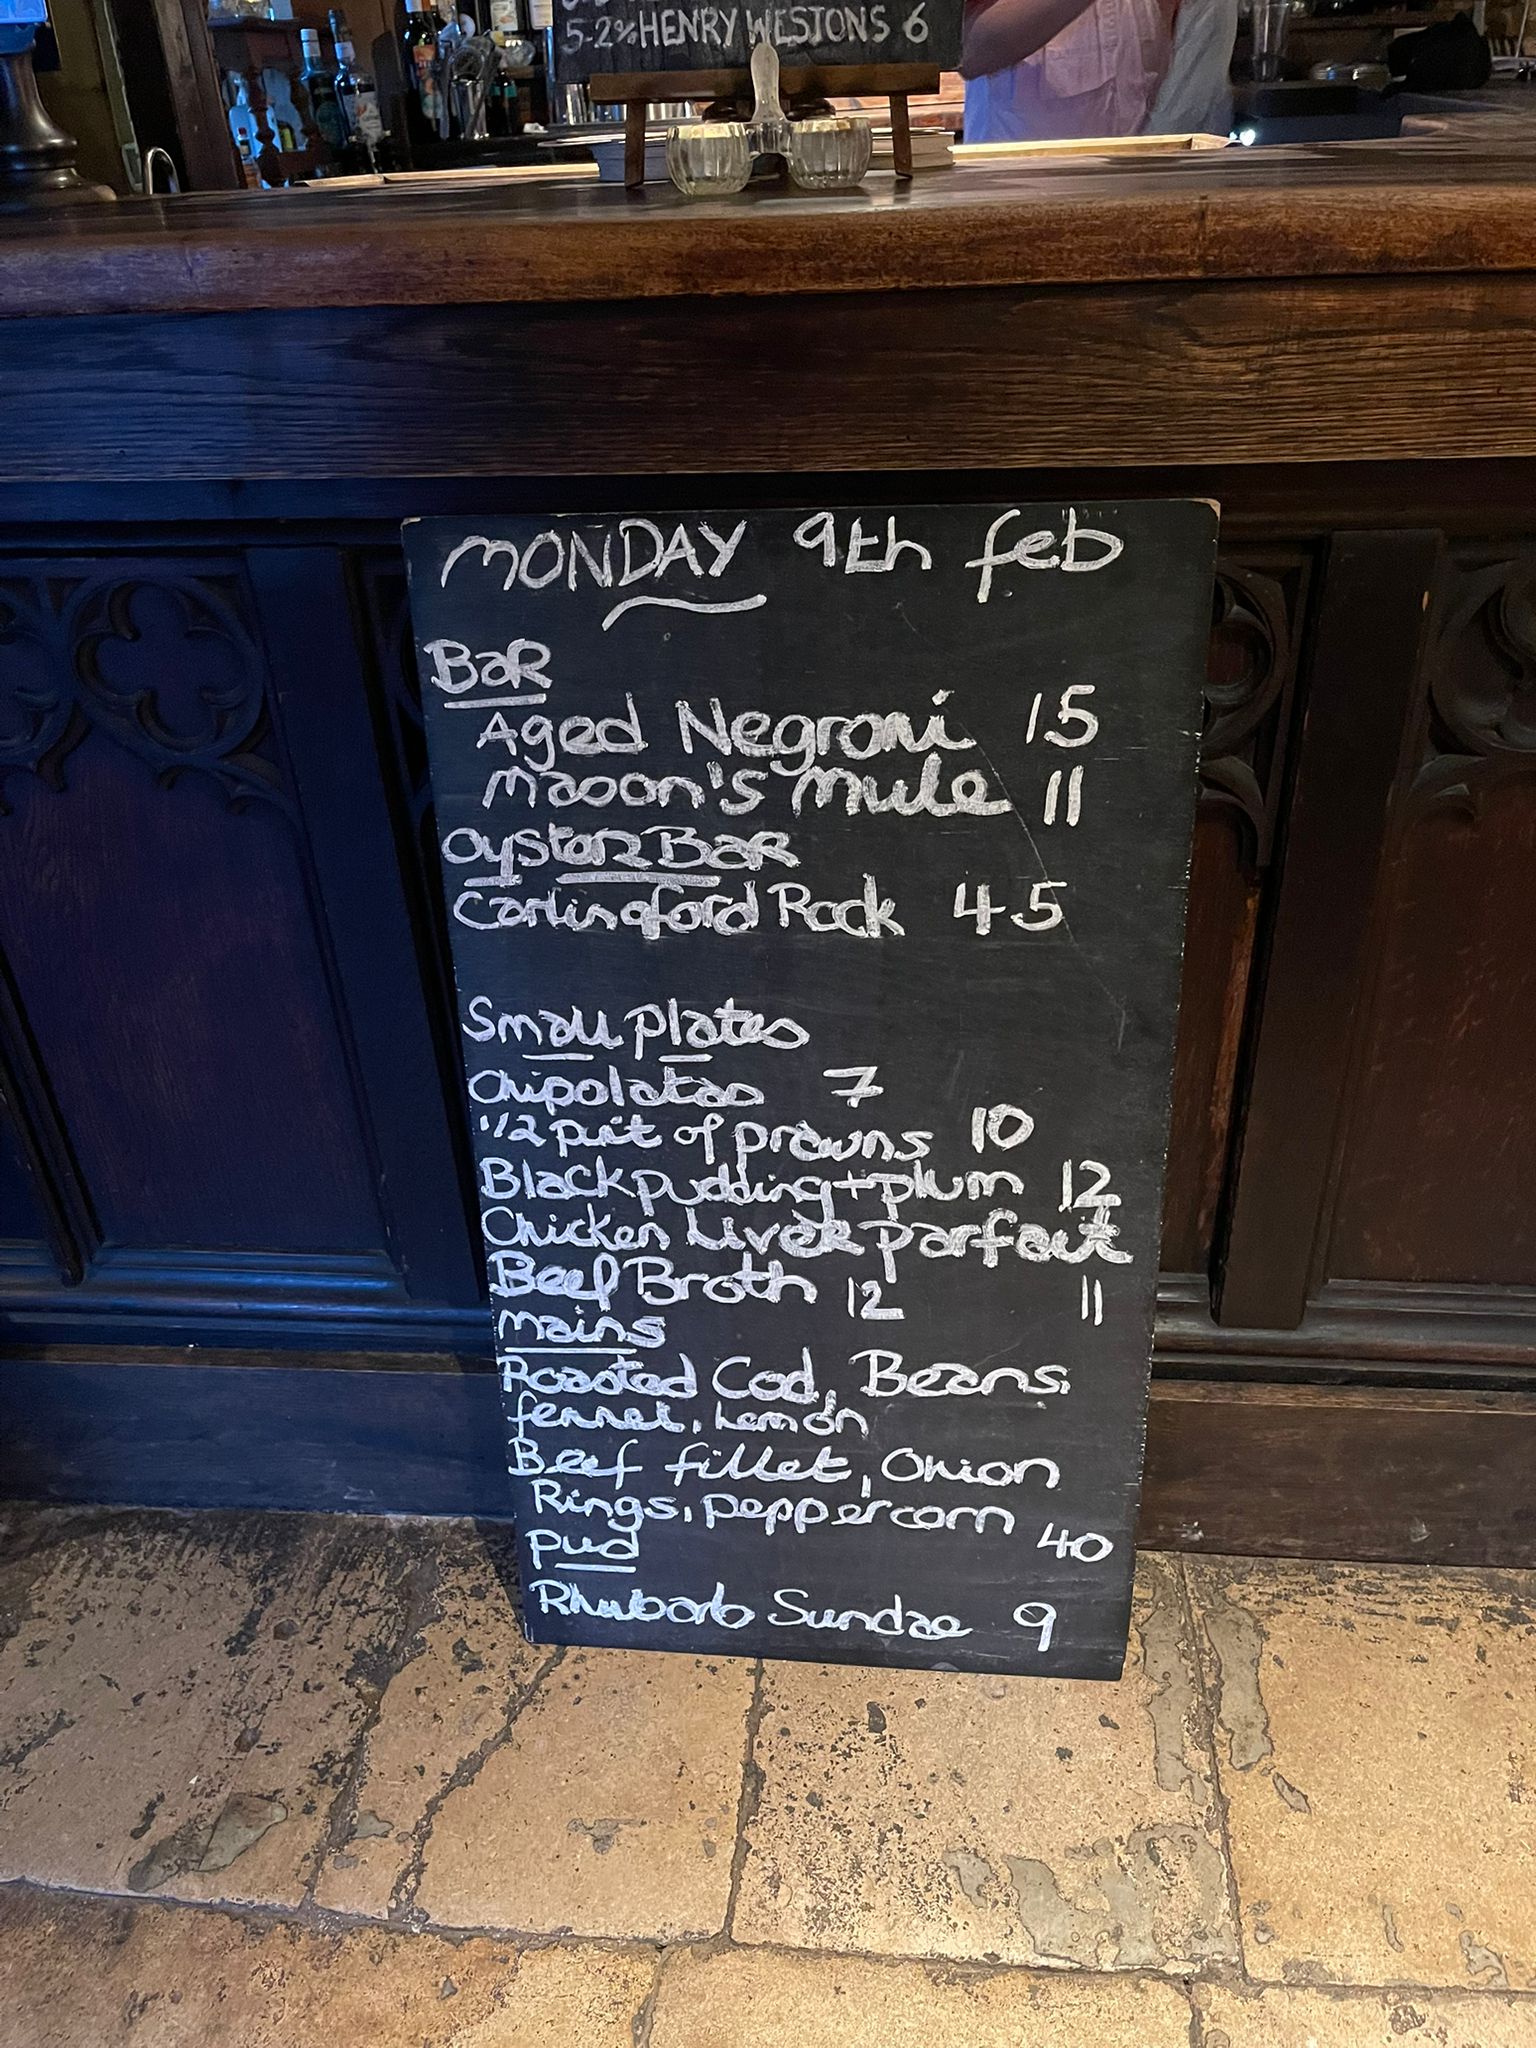 5.2% HENRY WESTONS 6
MONDAY 9th feb
BaR
Aged Negroni 15
Mason's Mule 11
Oyster BaR
Carlingford Rock 4.5
Small plates
Chipolatas 7
1/2 pint of prawns 10
Black pudding + plum 12
Chicken Liver parfait
Beef Broth 12 11
Mains
Roasted Cod, Beans,
fennel, Lemon
Beef fillet, Onion
Rings, peppercorn
40
pud
Rhubarb Sundae 9